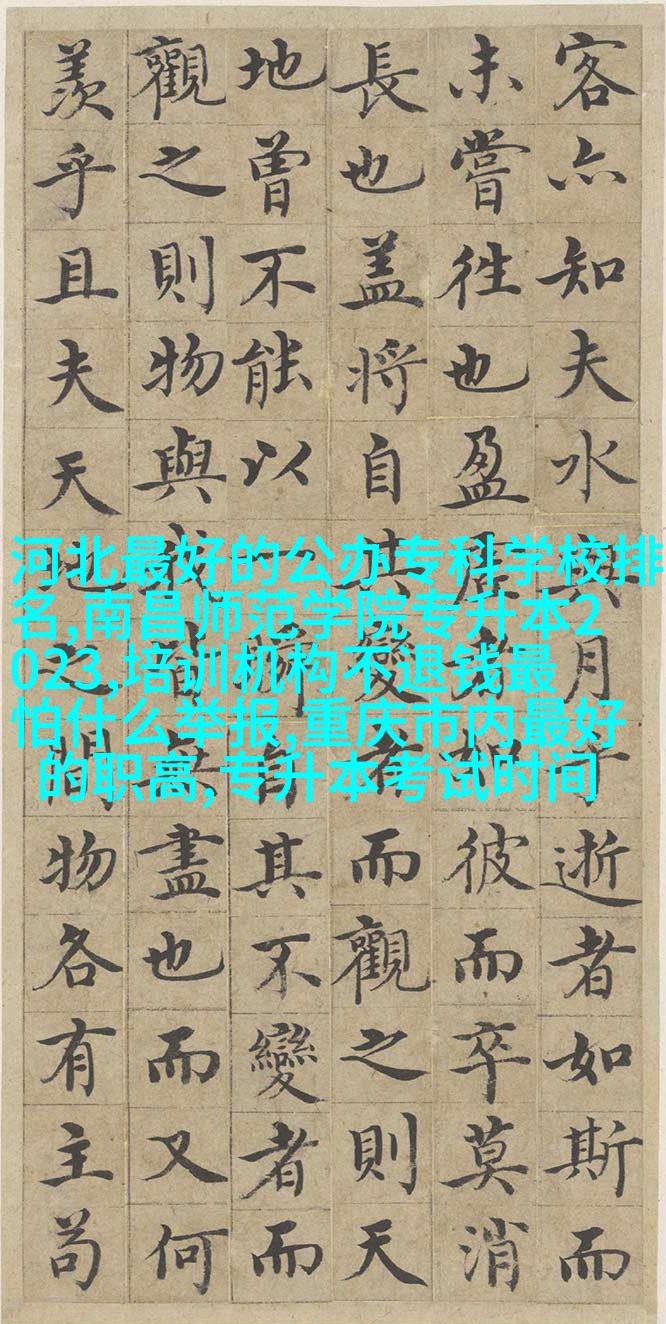 客亦知夫水與月乎逝者如斯而
未嘗往也盈虛者如彼而卒莫消
長也盖將自其變者而觀之則天
地曾不能以一瞬自其不變者而
觀之則物與我皆無盡也而又何
羨乎且夫天地之間物各有主苟
河北最好的公办专科学校排
名,南昌师范学院专升本2
023,培训机构不退钱最
怕什么举报,重庆市内最好
的职高,专升本考试时间